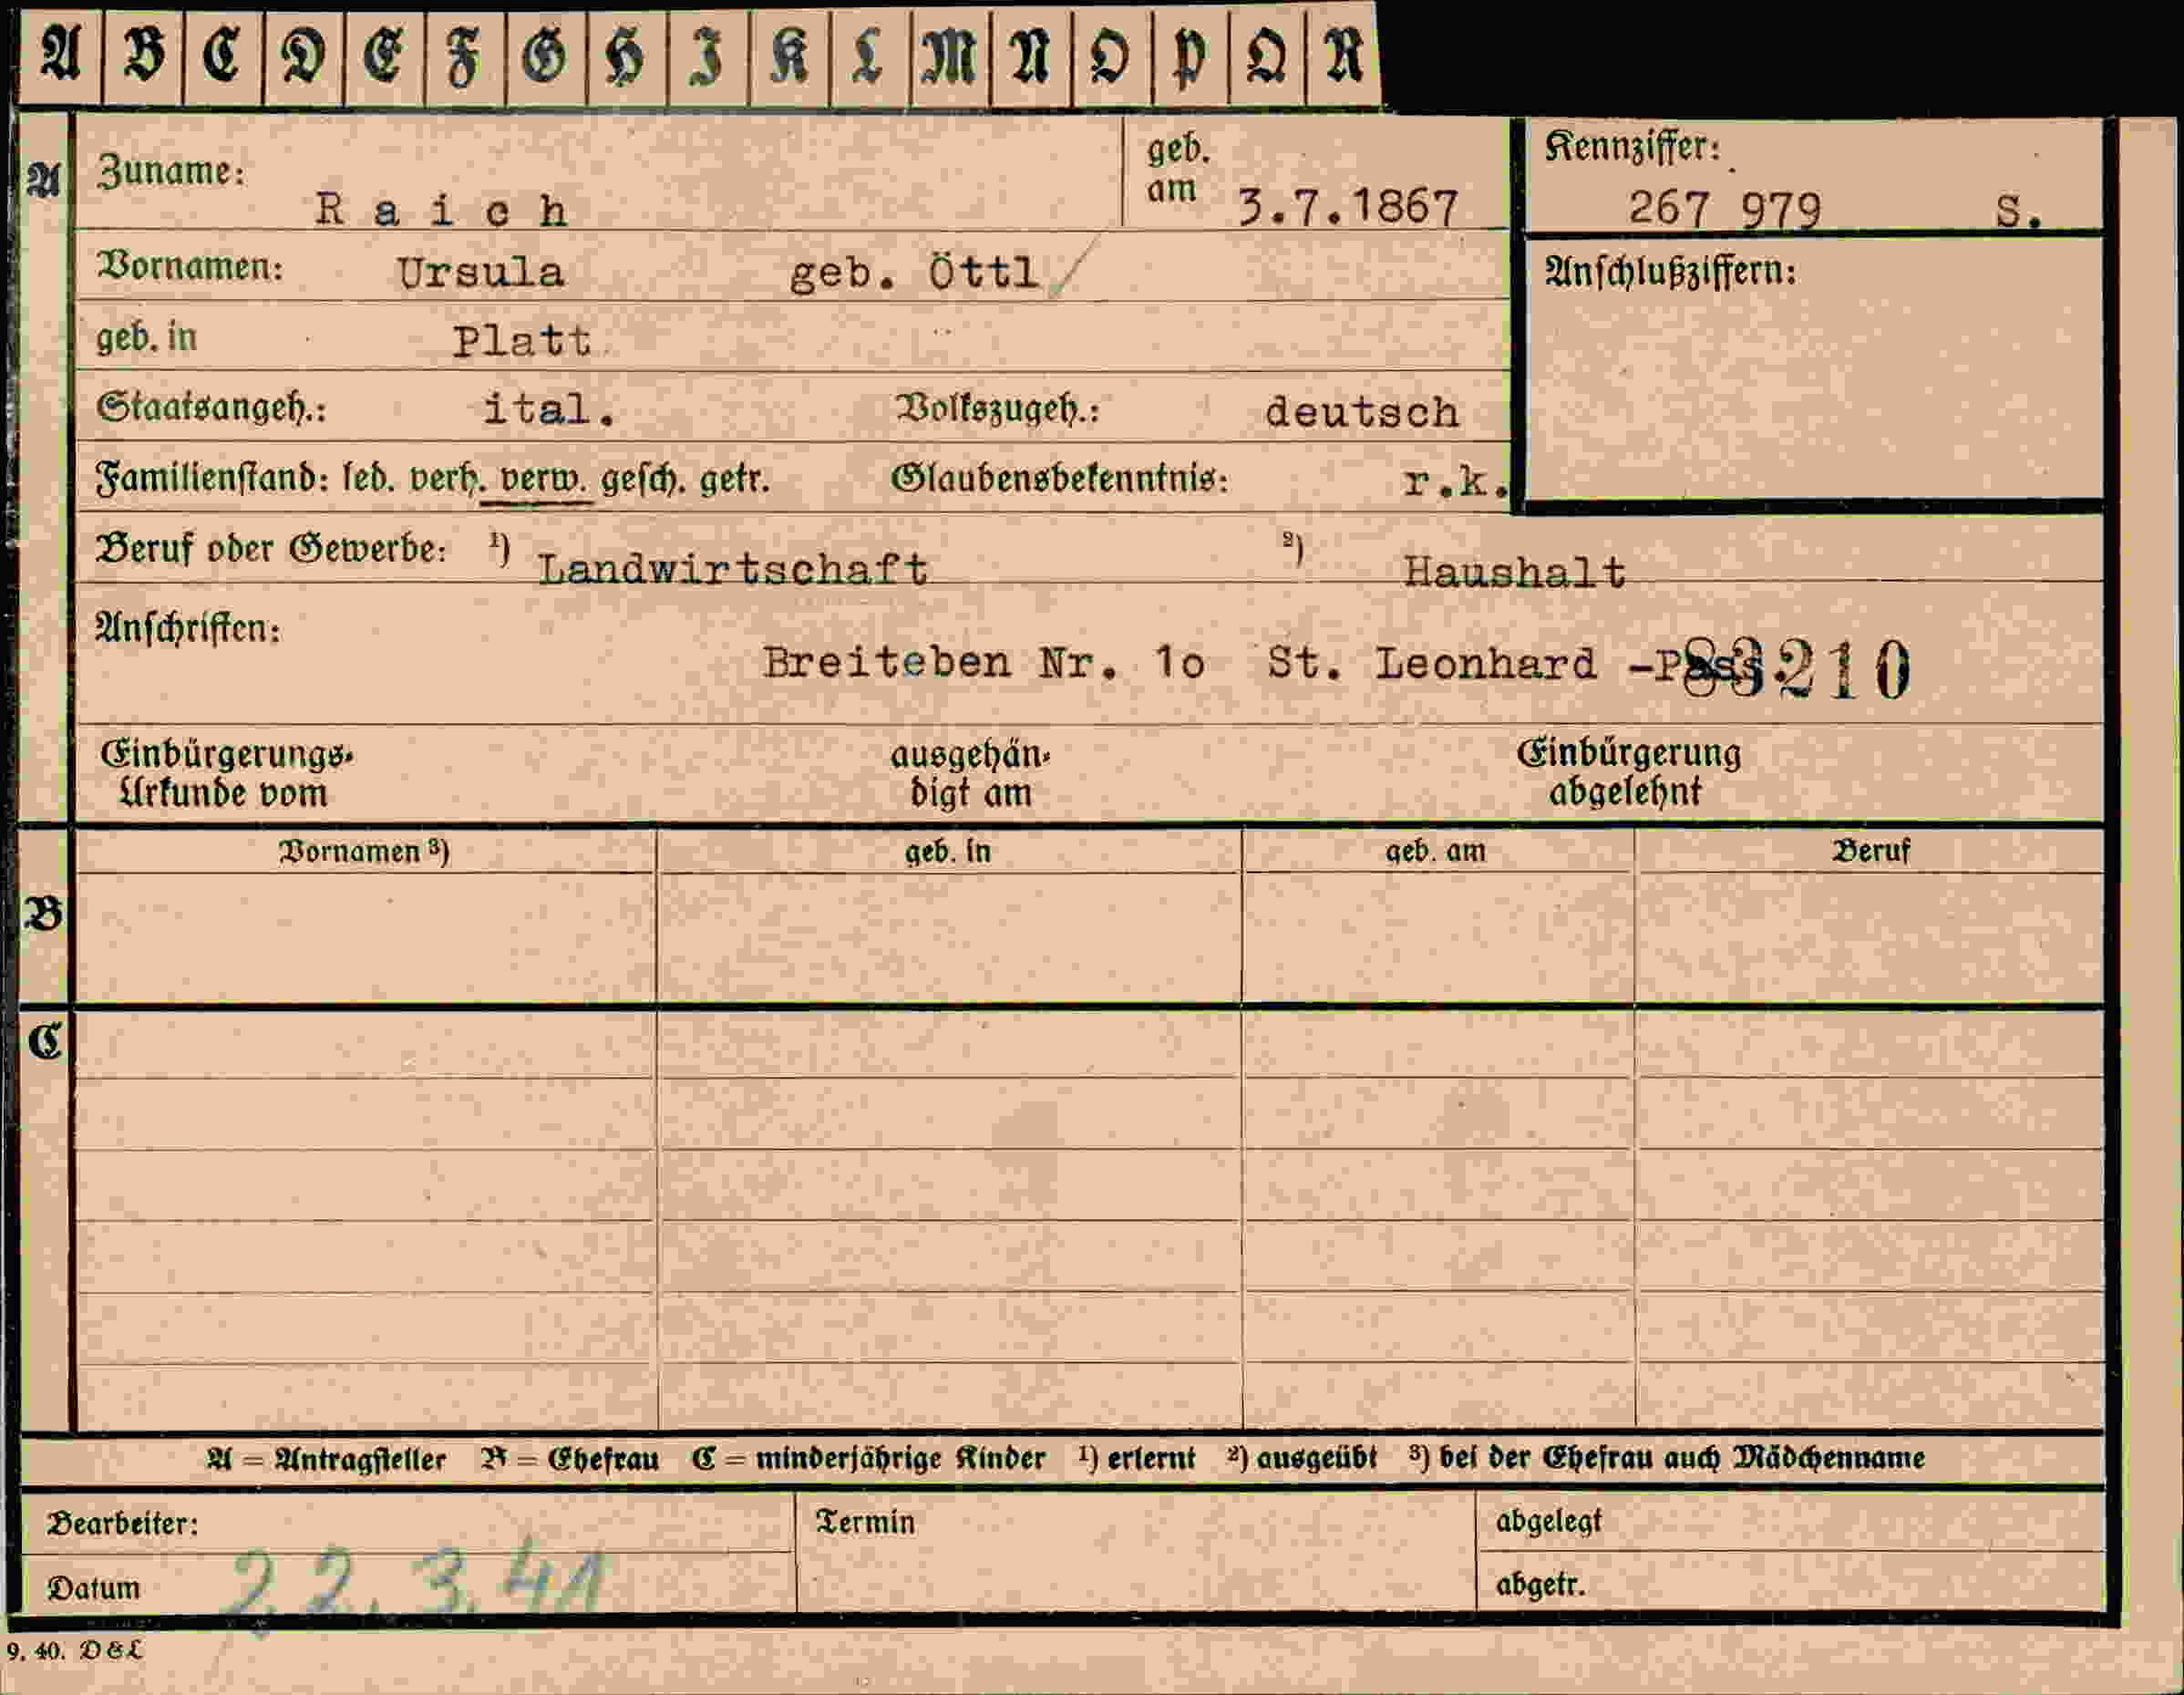 A B C D E F G H I K L M N O P Q R
A Zuname: Raich geb. am 3.7.1867 Kennziffer: 267 979 S.
Vornamen: Ursula geb. Öttl Anschlußziffern:
geb. in Platt
Staatsangeh.: ital. Volkszugeh.: deutsch
Familienstand: led. verh. verw. gesch. getr. Glaubensbekenntnis: r.k.
Beruf oder Gewerbe: ¹) Landwirtschaft ²) Haushalt
Anschriften:
Breiteben Nr. 1o St. Leonhard -Pass. 83210
Einbürgerungs- ausgehän- Einbürgerung
Urkunde vom digt am abgelehnt
Vornamen ³) geb. in geb. am Beruf
B
C
A = Antragsteller B = Ehefrau C = minderjährige Kinder ¹) erlernt ²) ausgeübt ³) bei der Ehefrau auch Mädchenname
Bearbeiter: Termin abgelegt
Datum 22.3.41 abgetr.
9. 40. D&L